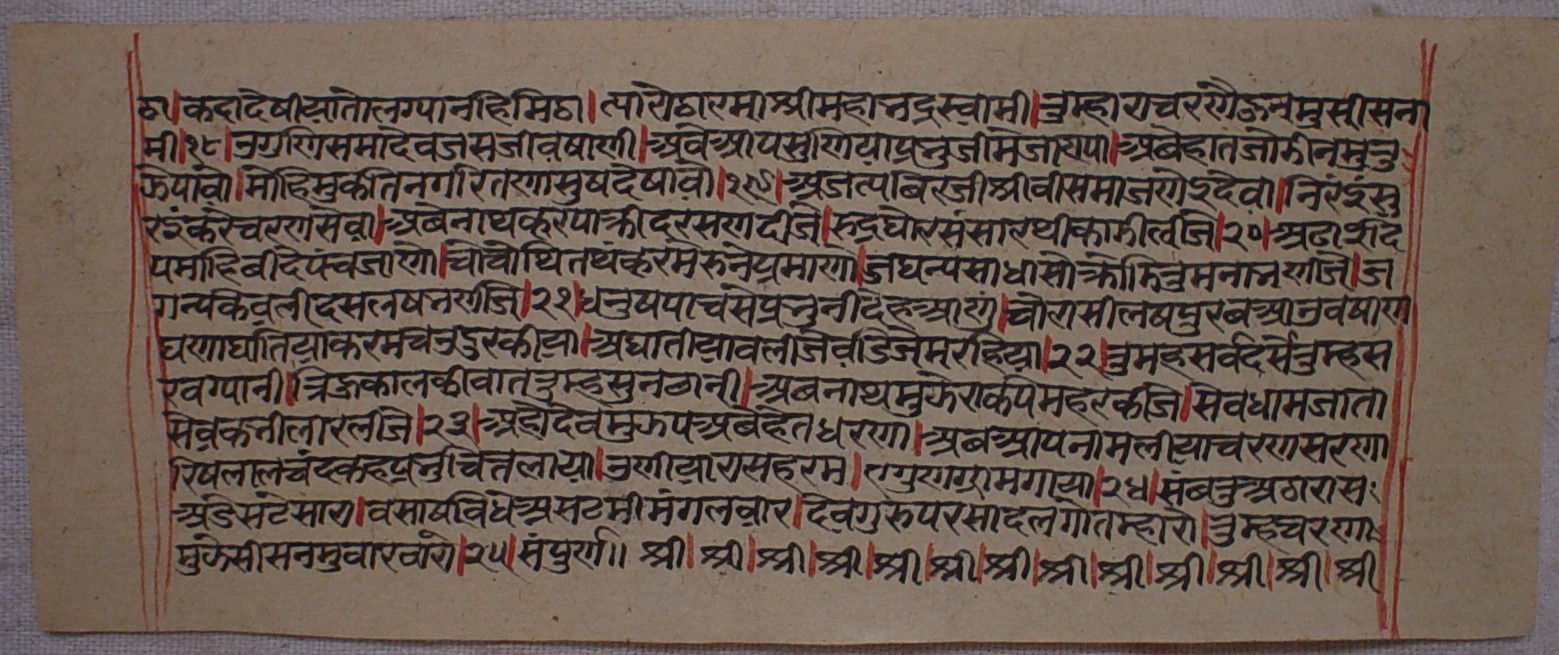 ठा।कदादेषीयातोलग्यानहिमिठा।त्पारोठारमाश्रीमहाभद्रस्वामी।तुम्हाराचरणैऊनमुसीसना
मी।१८।नगरिसमादेवजसजीवषाणी।अबैआपसुणियाप्रभुजीमेजाण्पा।अबैहातजोडीनमुतु
ऊपावो।मोहिमुकीतनगरितणासुषदेषावो।१९।अजत्पबिरजीश्रीवीसमाजणो२देवा।निरं२सु
र२करेचरणसेवा।अबैनाथकरपाकीदरसणदीजे।रुद्रघोरसंसारथीकाढीलीजे।२०।अढा२दि
पमाहिबीदेपंचजाणो।चोवोथितथंकरमेरुनेप्रमाणो।जघन्पसाधासोक्रोडितुमनाभणीजे।ज
गन्पकेवलीदसलषभणीजे।२१।धनुषपाचसेप्रभुनीदेहआण।चोरासीलषपुरबआउवषाण
घणाघातियाकरमचउदुरकीया।अघातीयावलीजेवडिजेमरहिया।२२।तुमहसर्वदर्सेतुम्हस
रवग्पानी।त्रिहुकालकीवाततुम्हसुनछानी।अबनाथमुऊरोकेपमहरकीजे।सेवधामजाता
सेवकनीलारलीजे।२३।अहोदेवमुऊपअबैहेतधरणा।अबआपनामलीयाचरणसरणा
रिषलालचंदकहप्रभुचितलाया।उणीयारासहरम।एगुणग्राममगाया।२४।संबतुअठारास॰
अडेसटेसारा।वेसाषविधअसटमीमंगलवार।देवगुरुपरसादलगीतम्हारो।तुम्हचरणा
मुऊसीसनमुवारवारो।२५।संपुर्ण॥श्री।श्री।श्री।श्री।श्री।श्री।श्री।श्री।श्री।श्री।श्री।श्री।श्री